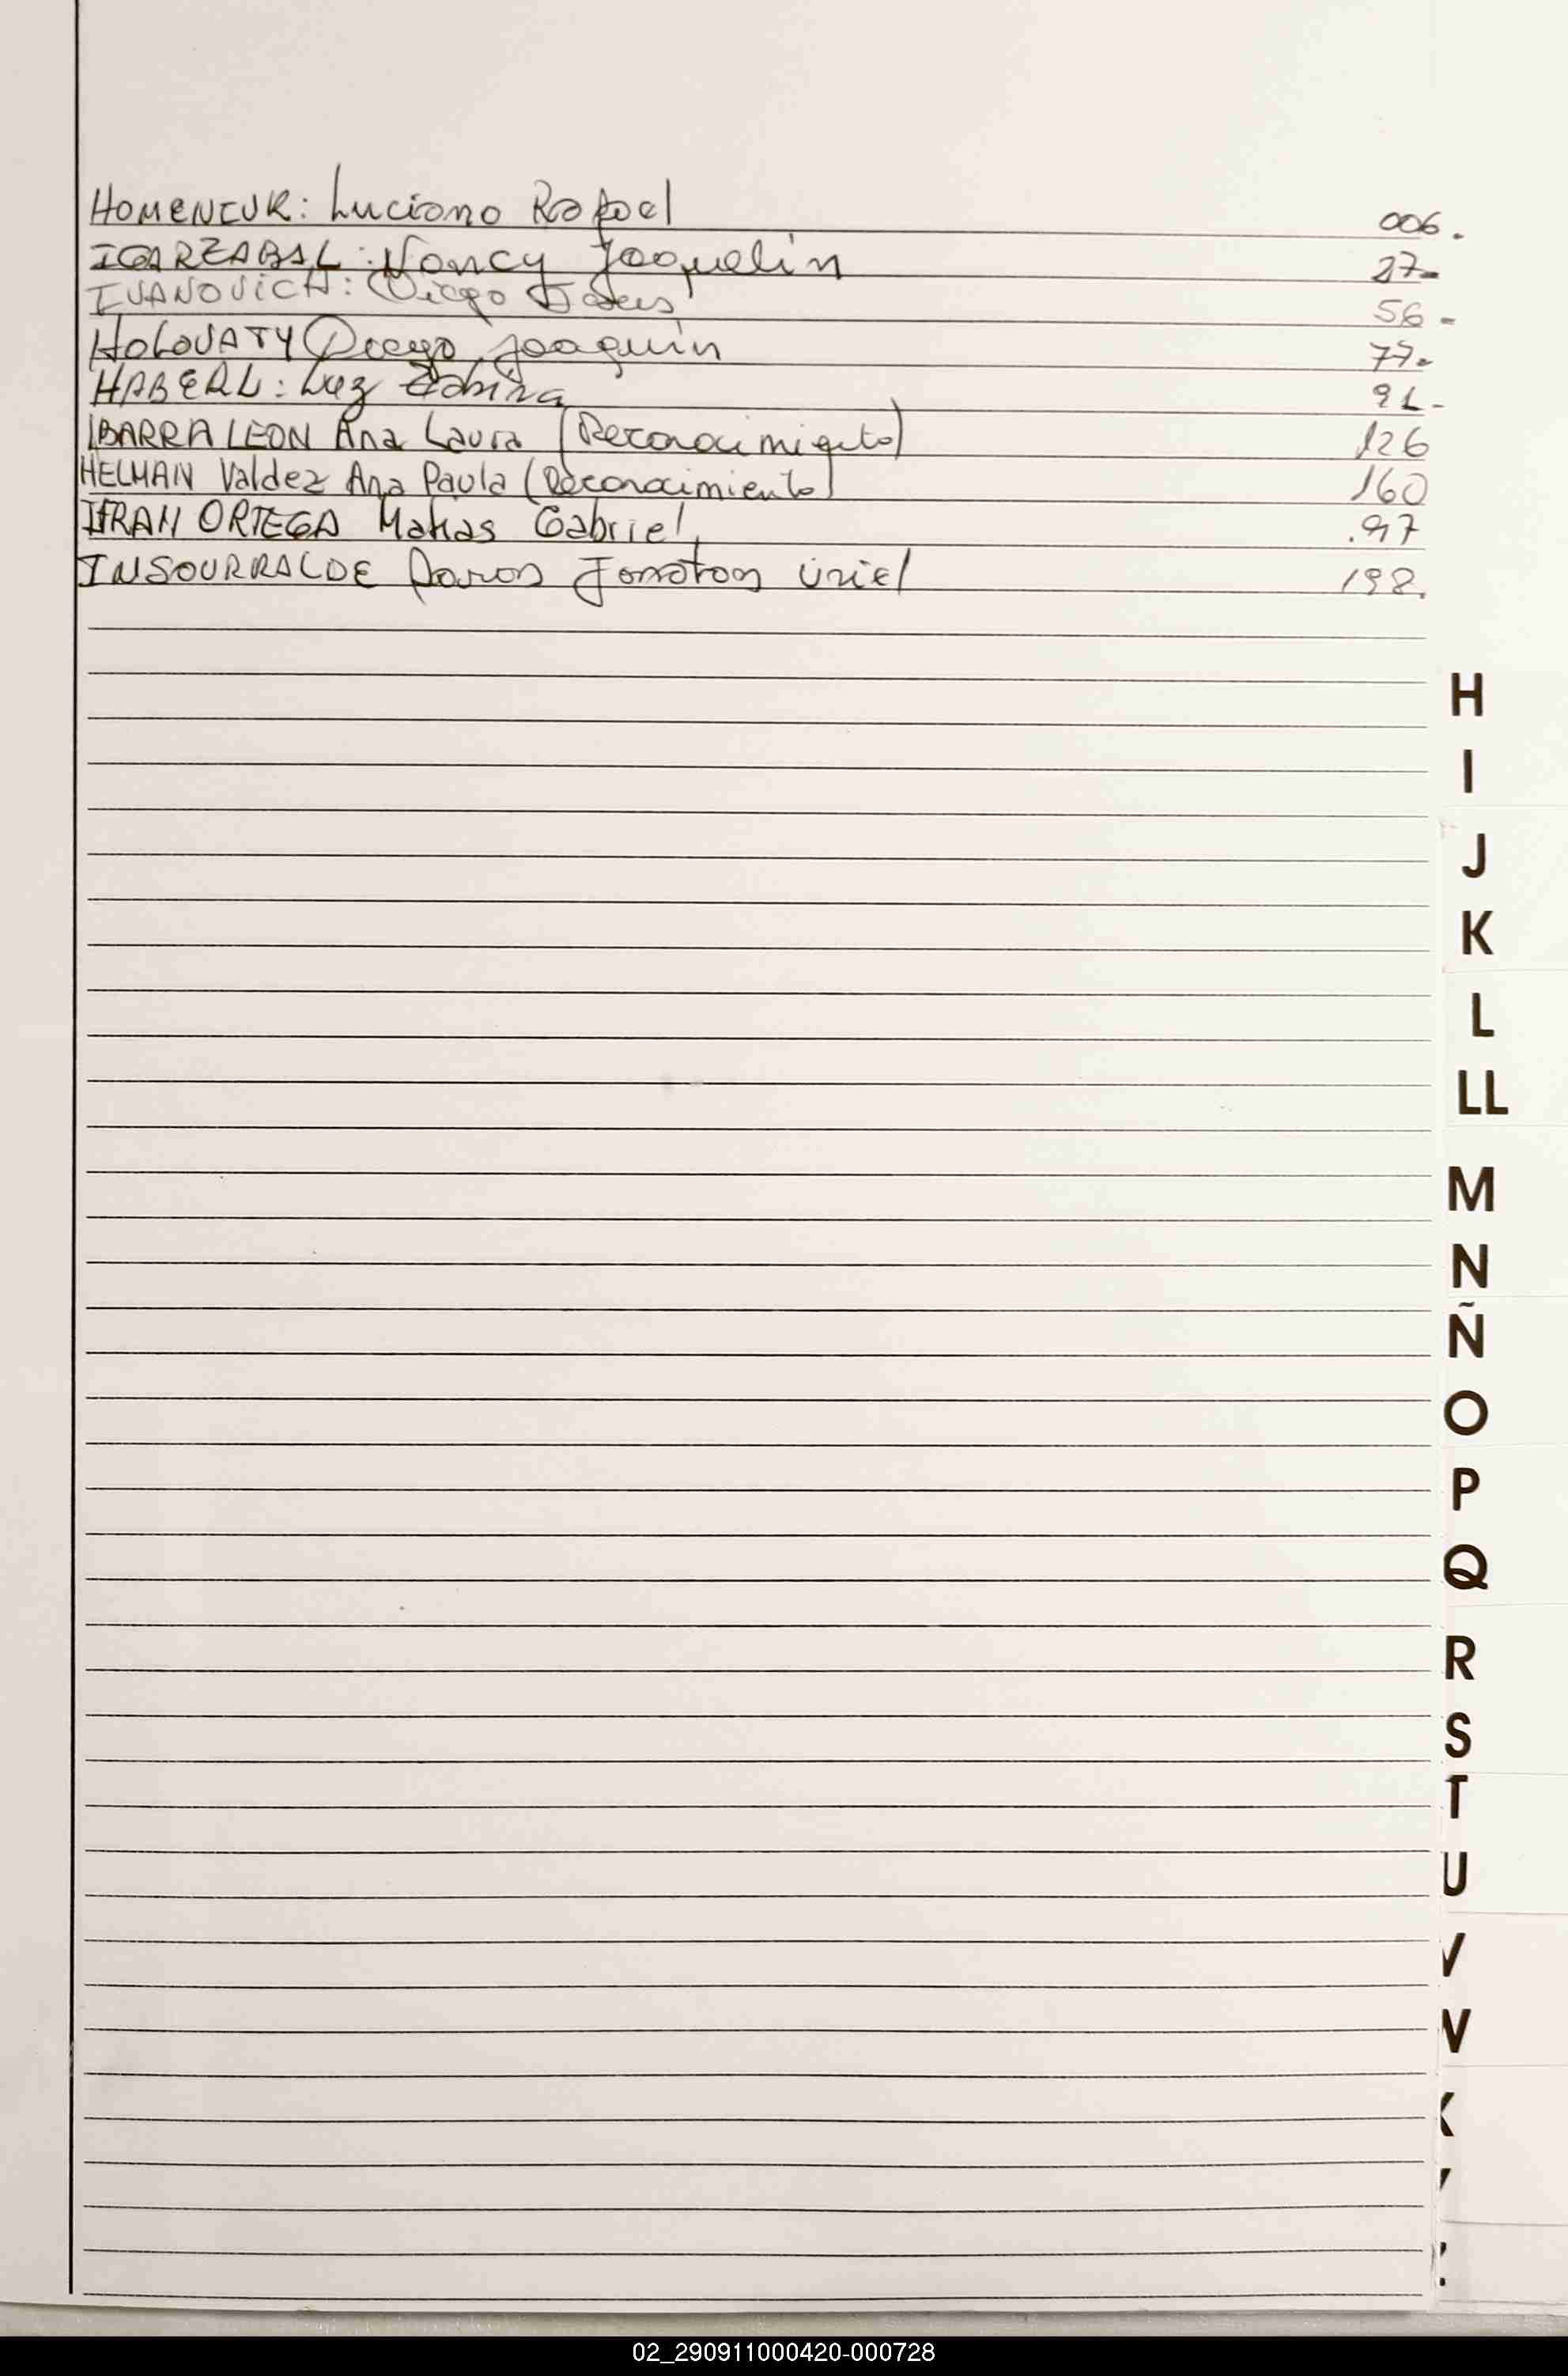 HOMENIUK: Luciano Rafael 006.
IGARZABAL: Nancy Jaquelin 27-
IVANOVICH: Diego 56-
HOLOVATY Diego Joaquin 77-
HABERL: Luz 91-
IBARRA LEON Ana Laura (Reconocimiento) 126
HELMAN Valdez Ana Paula (Reconocimiento) 160
IFRAN ORTEGA Matias Gabriel .97
INSOURRALDE Jonatan Uriel 198.
H
I
J
K
L
LL
M
N
Ñ
O
P
Q
R
S
T
U
V
W
X
Y
02_290911000420-000728